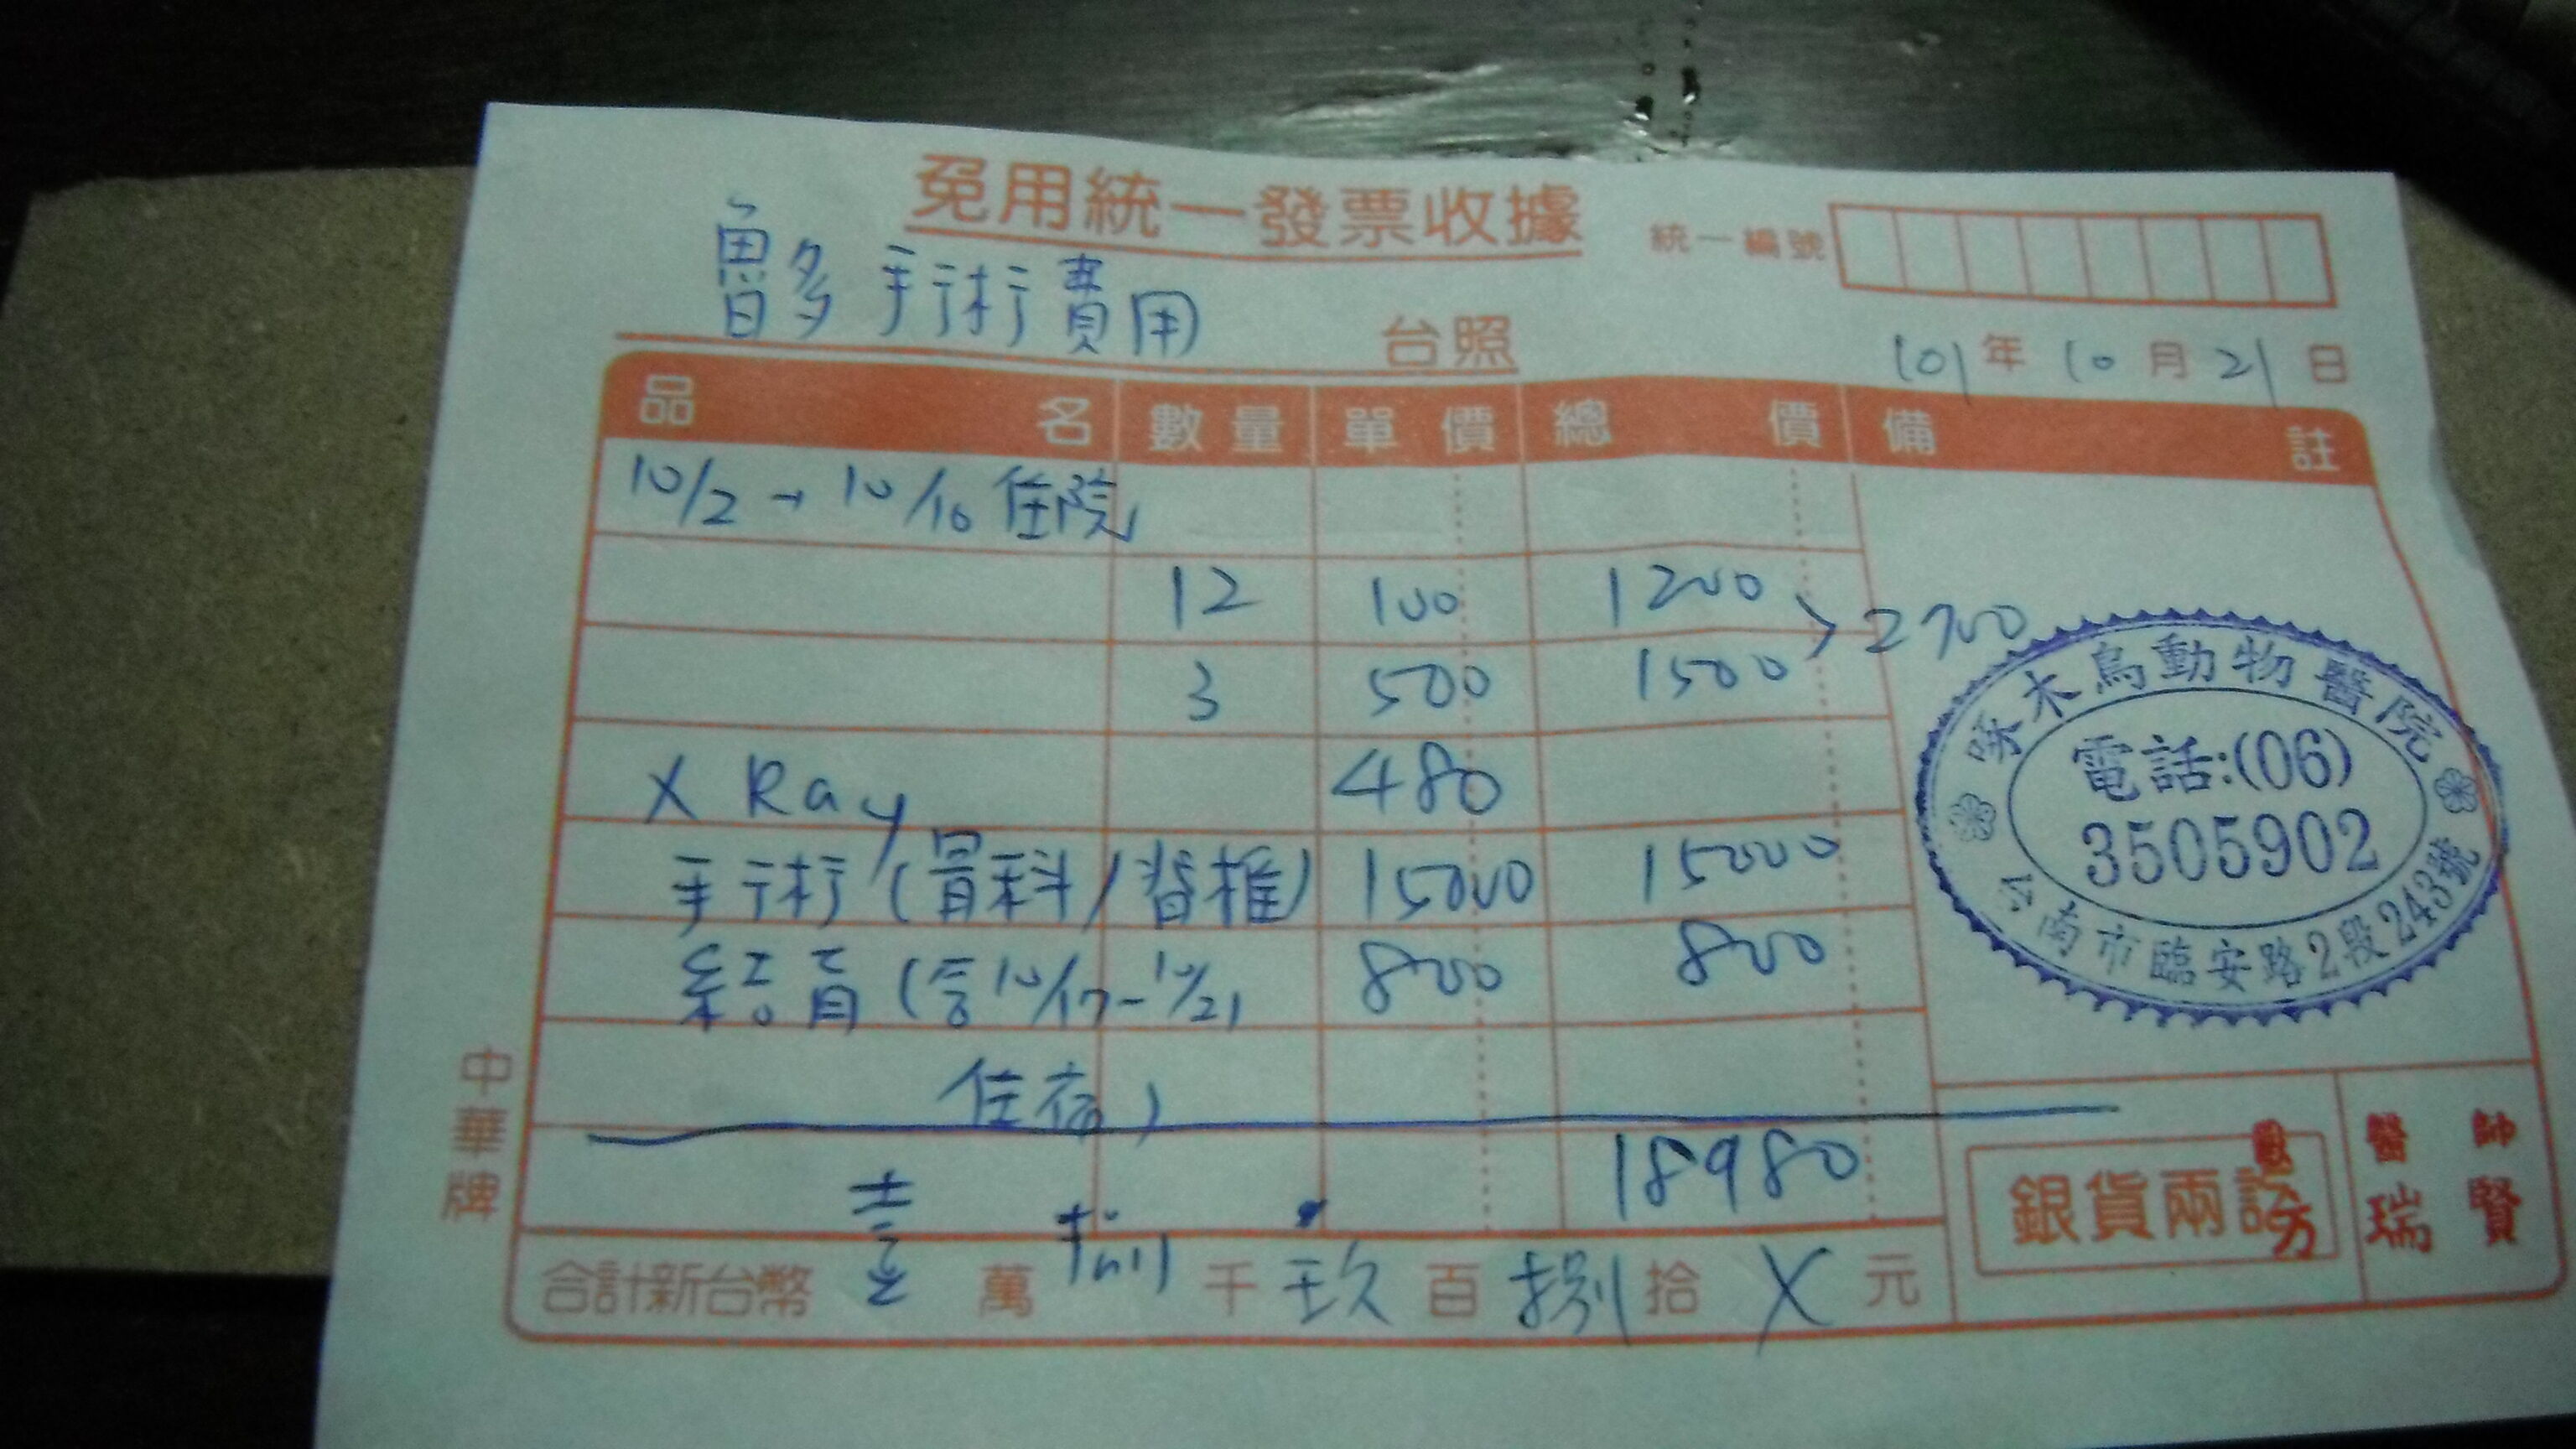 免用統一發票收據
統一編號
魯多 手術費用 台照
101年10月21日
品名 數量 單價 總價 備註
10/2→10/16 住院
12 100 1200
2700
3 500 1500
X Ray 480
手術(骨科/脊椎) 15000 15000
結育(含10/17-10/21 800 800
住宿)
18980
合計新台幣 壹 萬 捌 千 玖 百 捌 拾 X 元
啄木鳥動物醫院
電話:(06)
3505902
台南市臨安路2段243號
銀貨兩訖
醫師
方瑞賢
中華牌